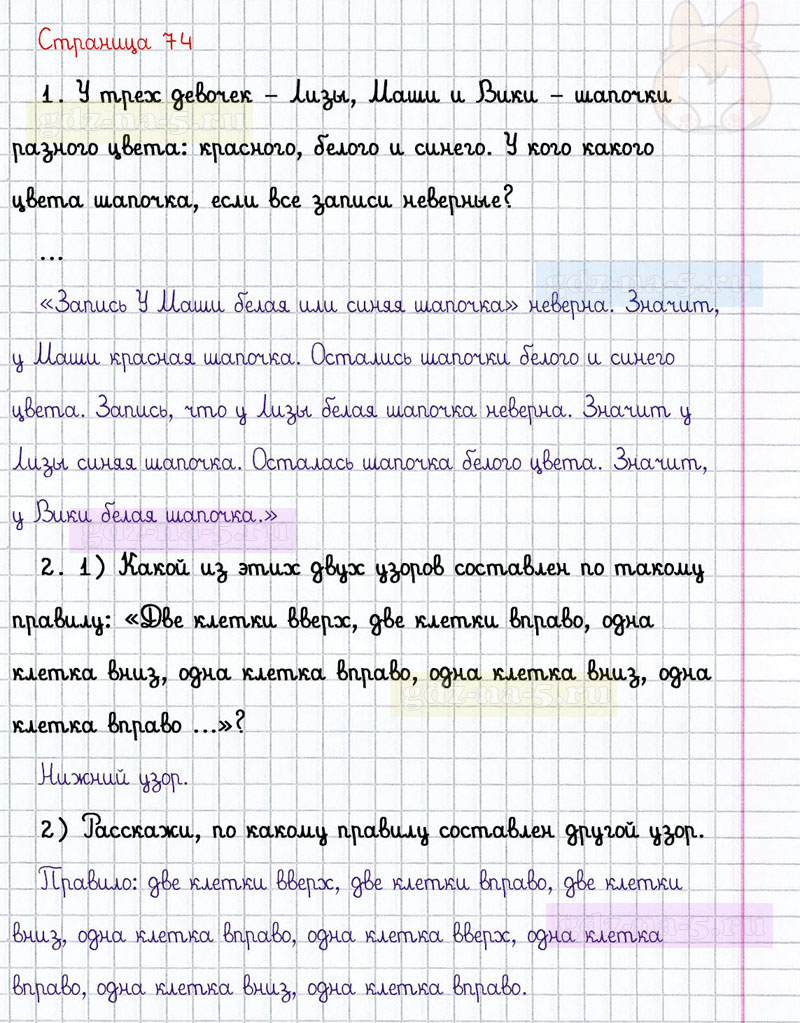 Страница 74
1. У трех девочек – Лизы, Маши и Вики – шапочки
gdz-na-5.ru
разного цвета: красного, белого и синего. У кого какого
цвета шапочка, если все записи неверные?
...
gdz-na-5.ru
«Запись У Маши белая или синяя шапочка» неверна. Значит,
у Маши красная шапочка. Остались шапочки белого и синего
цвета. Запись, что у Лизы белая шапочка неверна. Значит у
Лизы синяя шапочка. Осталась шапочка белого цвета. Значит,
у Вики белая шапочка.»
gdz-na-5.ru
2. 1) Какой из этих двух узоров составлен по такому
правилу: «Две клетки вверх, две клетки вправо, одна
клетка вниз, одна клетка вправо, одна клетка вниз, одна
gdz-na-5.ru
клетка вправо ...»?
Нижний узор.
2) Расскажи, по какому правилу составлен другой узор.
Правило: две клетки вверх, две клетки вправо, две клетки
gdz-na-5.ru
вниз, одна клетка вправо, одна клетка вверх, одна клетка
вправо, одна клетка вниз, одна клетка вправо.